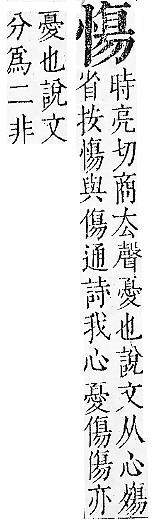 慯
時亮切商厺聲憂也說文从心殤
省按慯與傷通詩我心憂傷傷亦
憂也說文
分爲二非